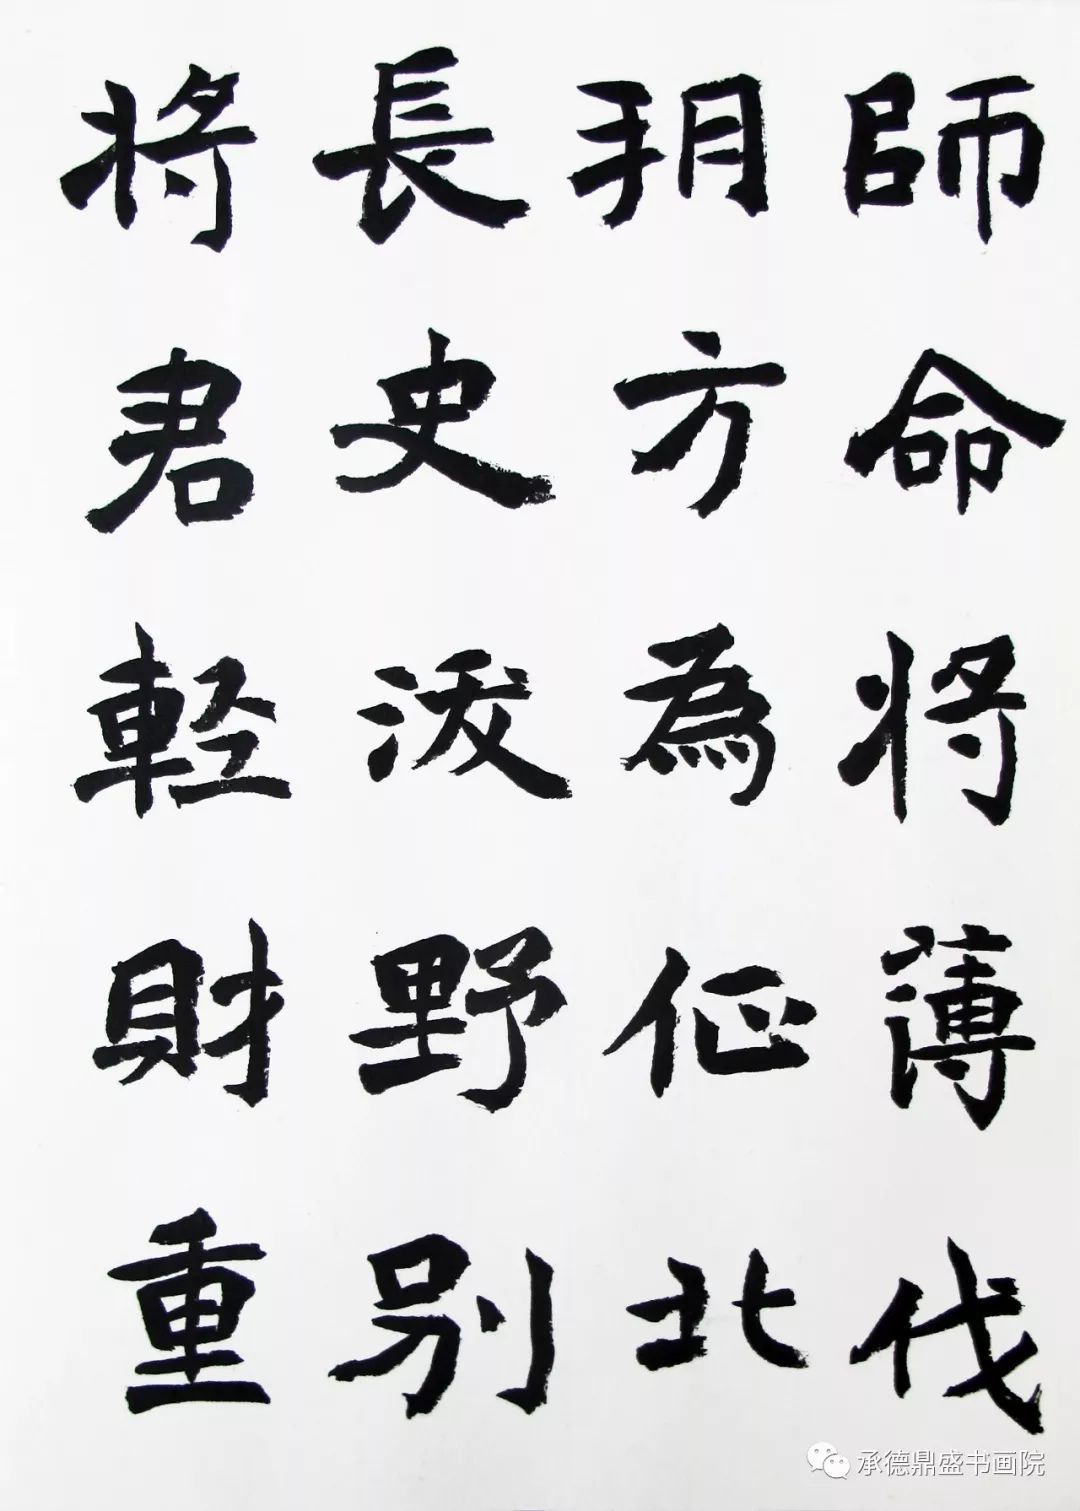 師命將薄伐
朔方為征北
長史沃野別
將君輕財重
承德鼎盛书画院